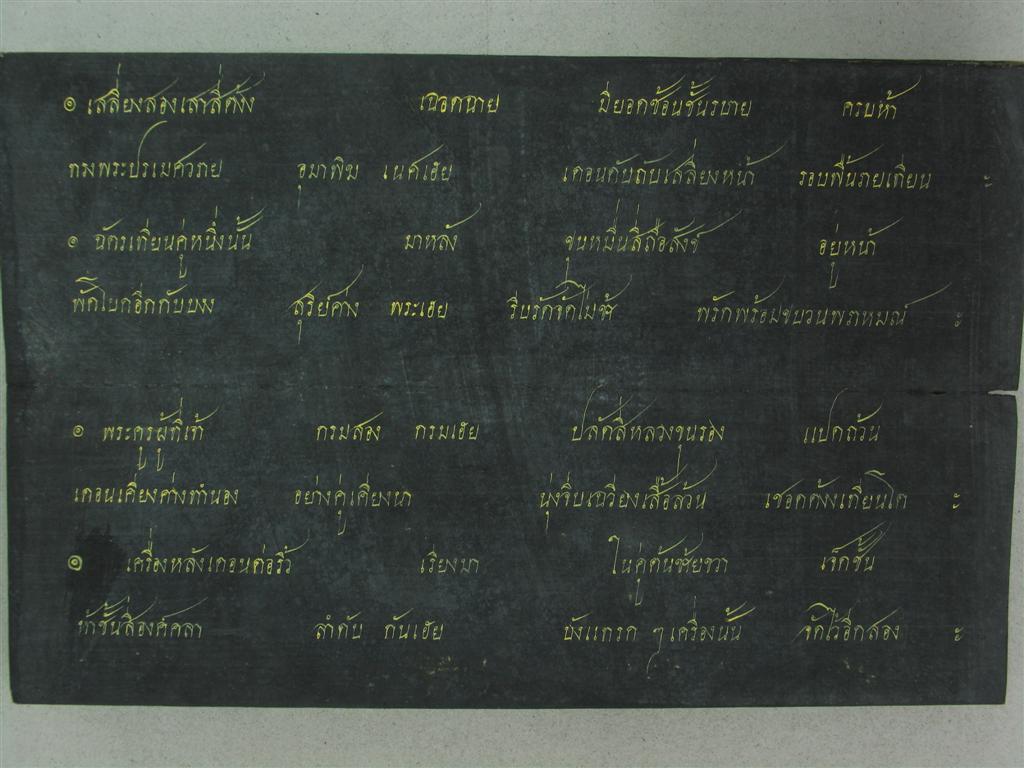 ๏ เสลี่ยงสองเสาสี่คัง เฉอดฉาย มียอดซ้อนชั้นรบาย ครบห้า
ทรงพระปรเมศวราย อุมาพิฆ เนศเฮย เดอนดับถับเสลี่ยงหน้า รอบพื้นรายเทียน ะ
๏ ฉัตรเทียนคู่หนึ่งนั้น มาหลัง ขุนหมื่นสี่ถือสังข์ อยู่หน้า
พัดโบกอีกกับบงง สุริย์ค่าง พระเฮย รีบรัดจัดไม่ช้า พรักพร้อมขบวนพราหมณ์ ะ
๏ พระครูผู้ที่เท้ กรมสอง กรมเฮย ปลัดสี่หลวงขุนรอง แปดถ้วน
เดอนเคียงค่างทำนอง อย่างคู่ เคียงนา นุ่งจีบเฉวียงเสื้อล้วน เชอดค้างเทียนไต ะ
๏ เครื่องหลังเดอนต่อริ้ว เรียงมา ใน่คู่ต้นชัยขวา เจ็ดชั้น
ห้าชั้นสี่องค์คลา ลำดับ กันเฮย บังแทรก ๆ เครื่องนั้น จัดไว้อีกสอง ะ